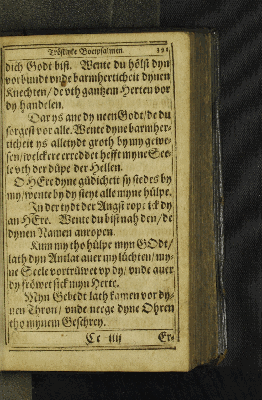 Tröstlyke Boetpsalmen. 191
dich Godt bist. Wente du höltst dyn
vorbundt vnde barmherticheit dynen
Knechten / de vth gantzem Herten vor
dy handelen.
Dar ys ane dy neen Godt / de du
sorgest vor alle. Wente dyne barmher-
ticheit ys alletydt groth by my gewe-
sen / welckere erreddet hefft myne See-
le vth der düpe der Hellen.
O HEre dyne güdicheit sy stedes by
my / wente by dy steyt alle myne hülpe.
In der tydt der Angst rope ick dy
an HEre. Wente du bist nah den / de
dynen Namen anropen.
Kum my tho hülpe myn GOdt /
lath dyn Antlat auer my lüchten / my-
ne Seele vortrüwet vp dy / vnde auer
dy fröwet sick myn Herte.
Myn Gebedt lath kamen vor dy-
nen Thron / vnde neege dyne Ohren
tho mynem Geschrey.
Cc iiij Er-